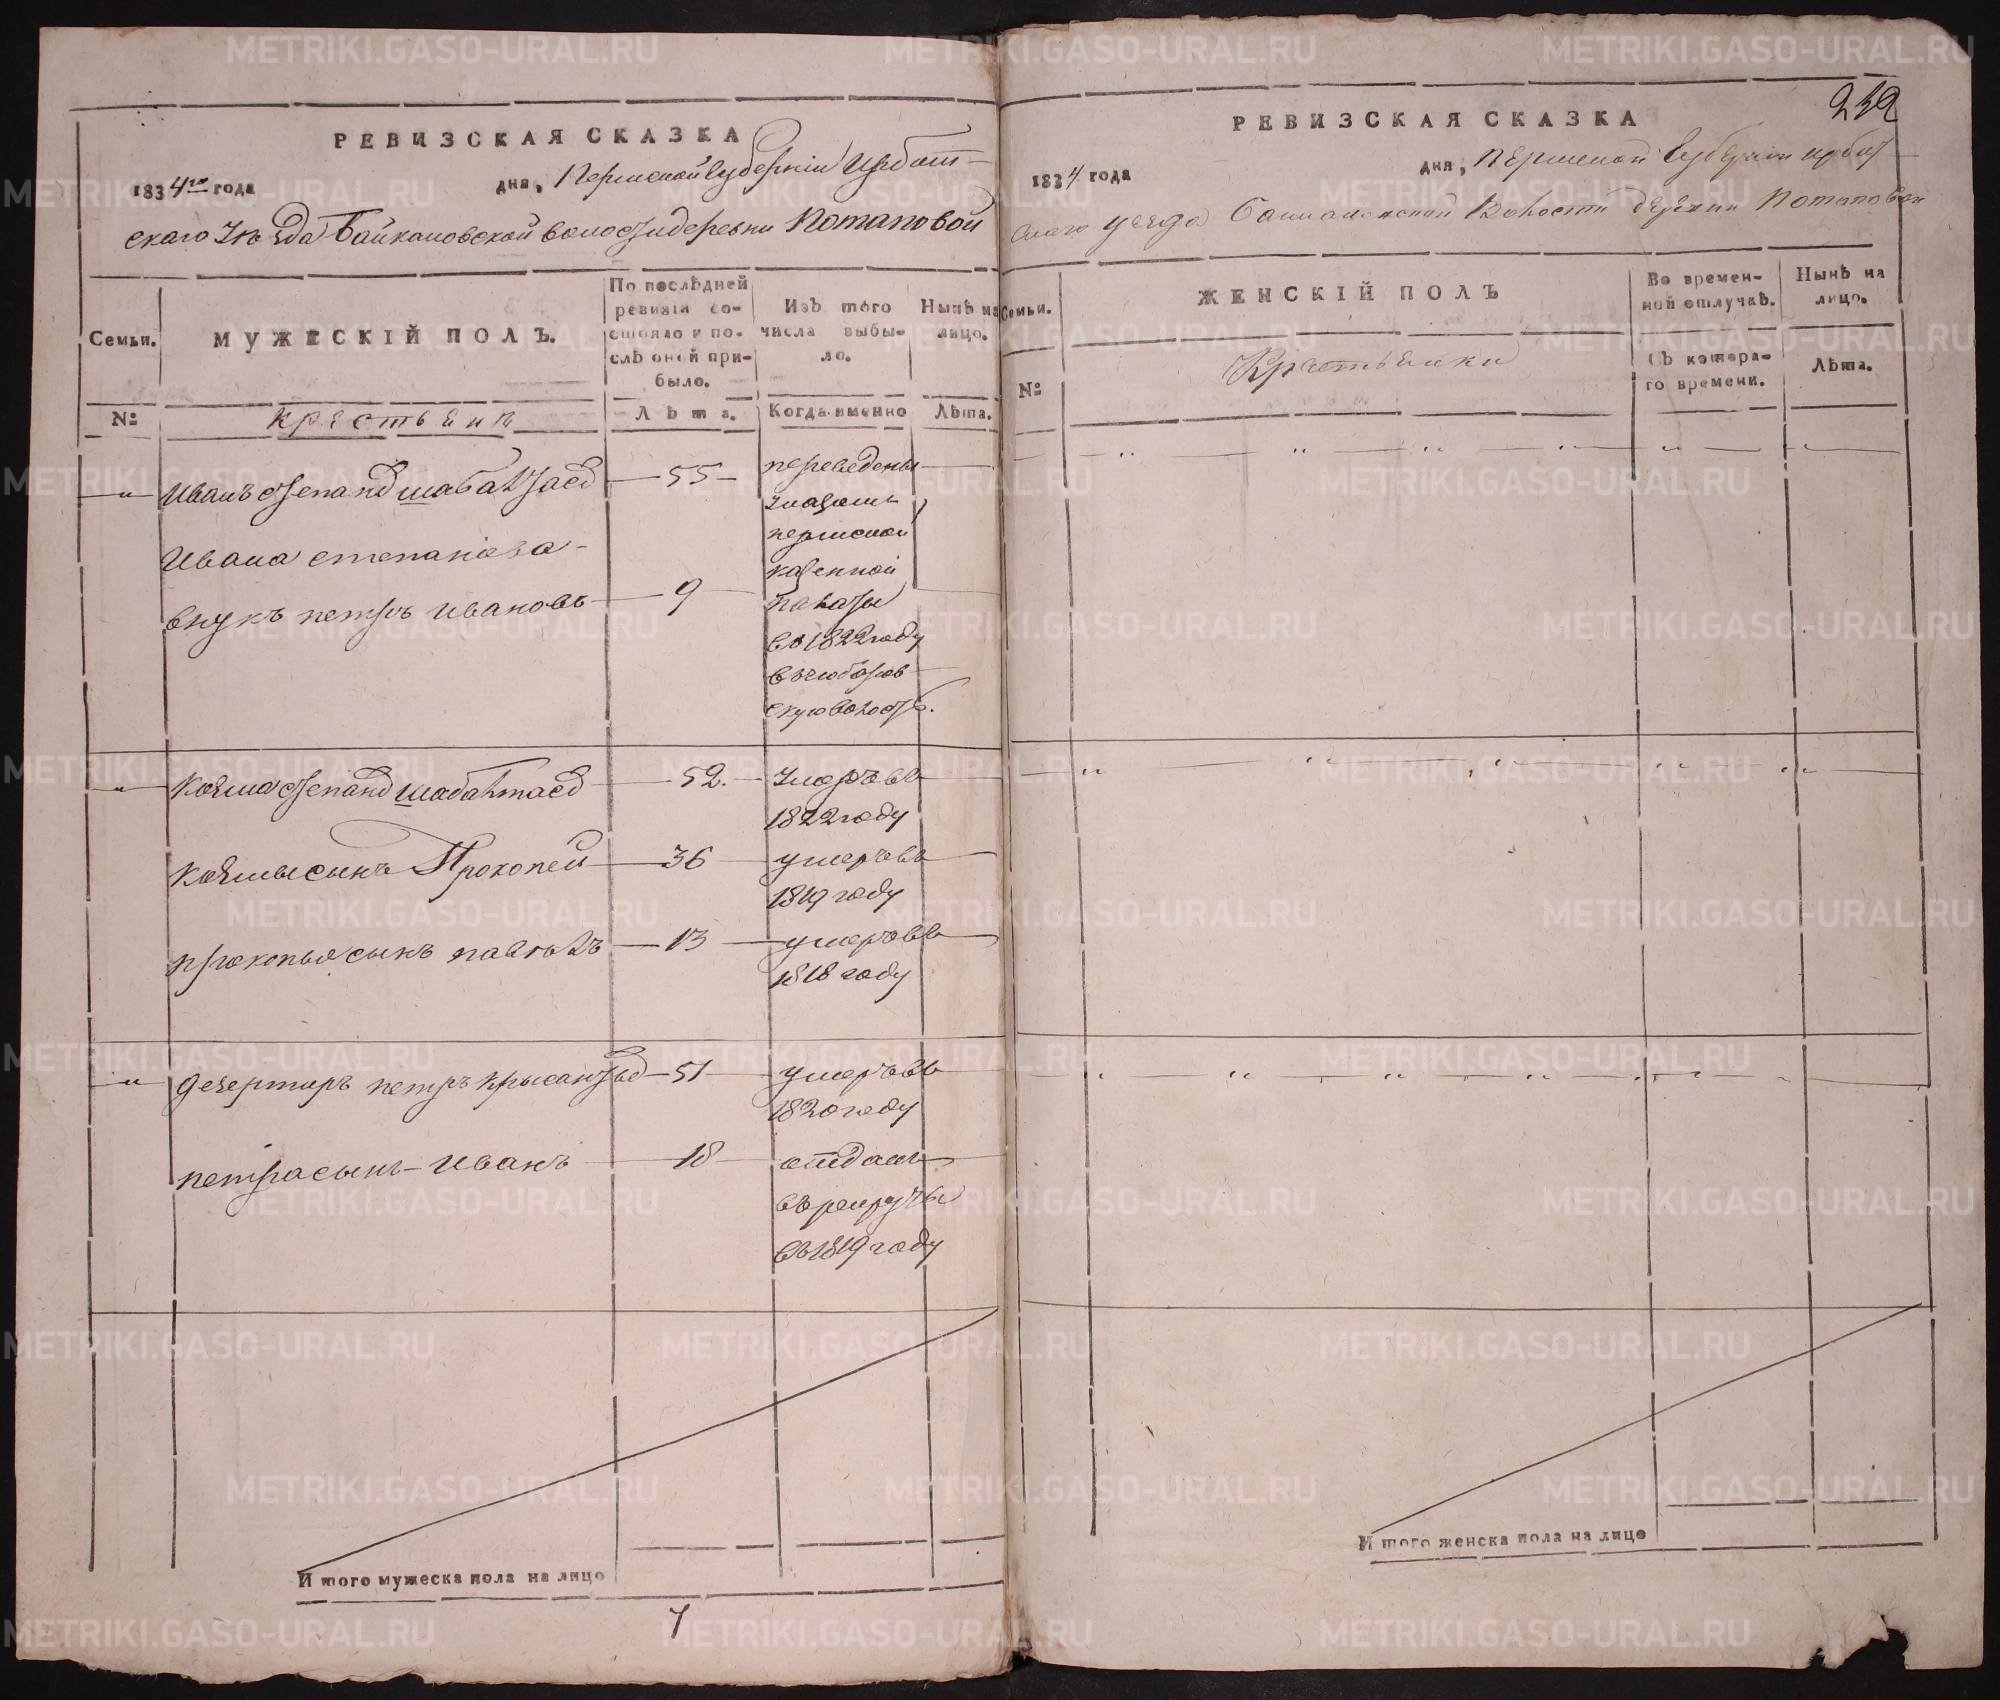 РЕВИЗСКАЯ СКАЗКА
1834го года дня, Пермской Губерніи Ирбит-
скаго Уѣзда Байкаловской волости деревни Потаповой
Семьи.
МУЖЕСКІЙ ПОЛЪ.
По послѣдней ревизіи состояло и послѣ оной прибыло.
Изъ того числа выбыло.
Нынѣ на лицо.
№
крестьянъ
Лѣта.
Когда именно
Лѣта.
Иванъ Степановъ Шабалтаевъ 55 переведены
указомъ
пермской
Ивана Степанова
казенной
внукъ Петръ Ивановъ 9 палаты
въ 1822 году
скую волость.
Козма Степановъ Шабалтаевъ 52. умеръ въ
1822 году
Козмы сынъ Прокопей 36 умеръ въ
1819 году
Прокопья сынъ Павелъ 13 умеръ въ
1818 году
Дезертиръ Петръ Крысантьевъ 51 умеръ въ
1820 году
Петра сынъ Иванъ 18 отданъ
въ рекруты
въ 1819 году
И того мужеска пола на лицо
7
232
РЕВИЗСКАЯ СКАЗКА
1834 года дня, Пермской Губерніи Ирбит
скаго уезда Байкаловской Волости деревни Потаповой
Семьи.
ЖЕНСКІЙ ПОЛЪ
Во временной отлучкѣ.
Нынѣ на лицо.
№
Крестьянки
Съ котораго времени.
Лѣта.
И того женска пола на лицо
METRIKI.GASO-URAL.RU